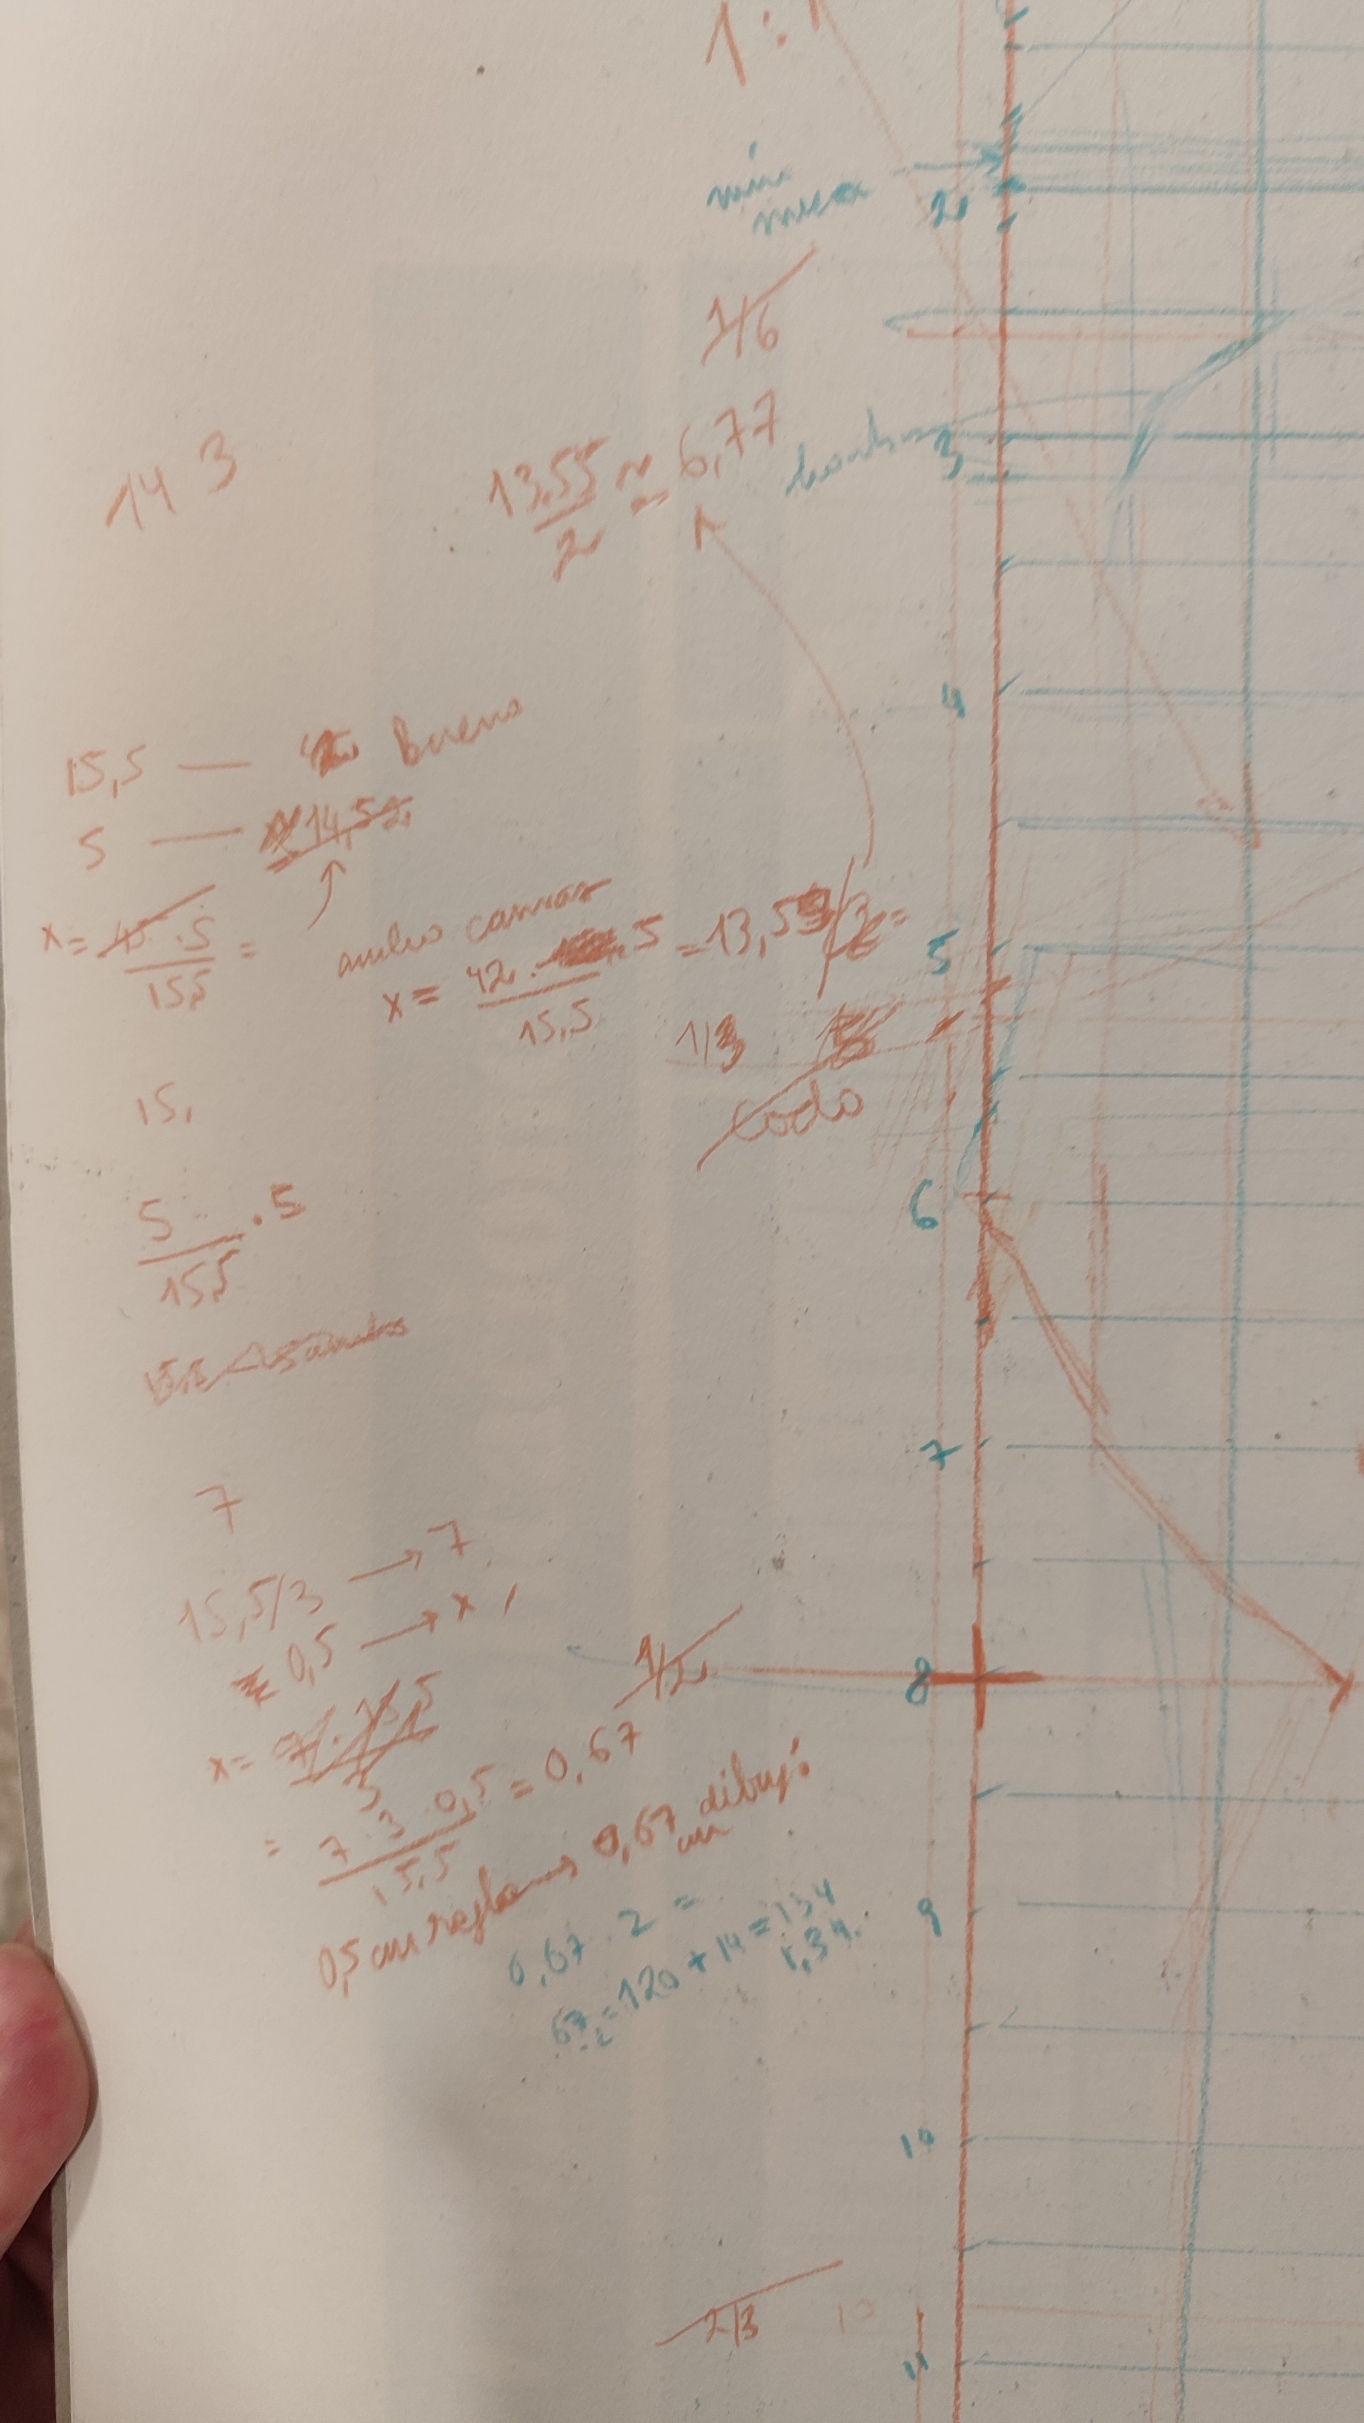 1:1
mín
nuca
2
1/6
14 3
13,55/2 ≈ 6,77
hombros
3
4
15,5 — Bueno
5 — 14,52
x = 45 · 5 / 15,5 =
ancho
x = 42 · 5 / 15,5 = 13,55
5
1/3
codo
15,
5 / 15,5 · 5
6
7
7
15,5/3 → 7
0,5 → x
1/2
8
x =
= 7 · 3 · 0,5 / 15,5 = 0,67
0,5 cm regla → 0,67 cm dibujo
0,67 · 2 =
67 · 2 = 120 + 14 = 134
1,34
9
10
2/3
10
11